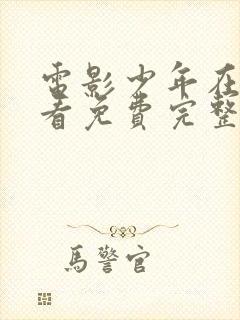 電影少年在
看免費完整
馬警官